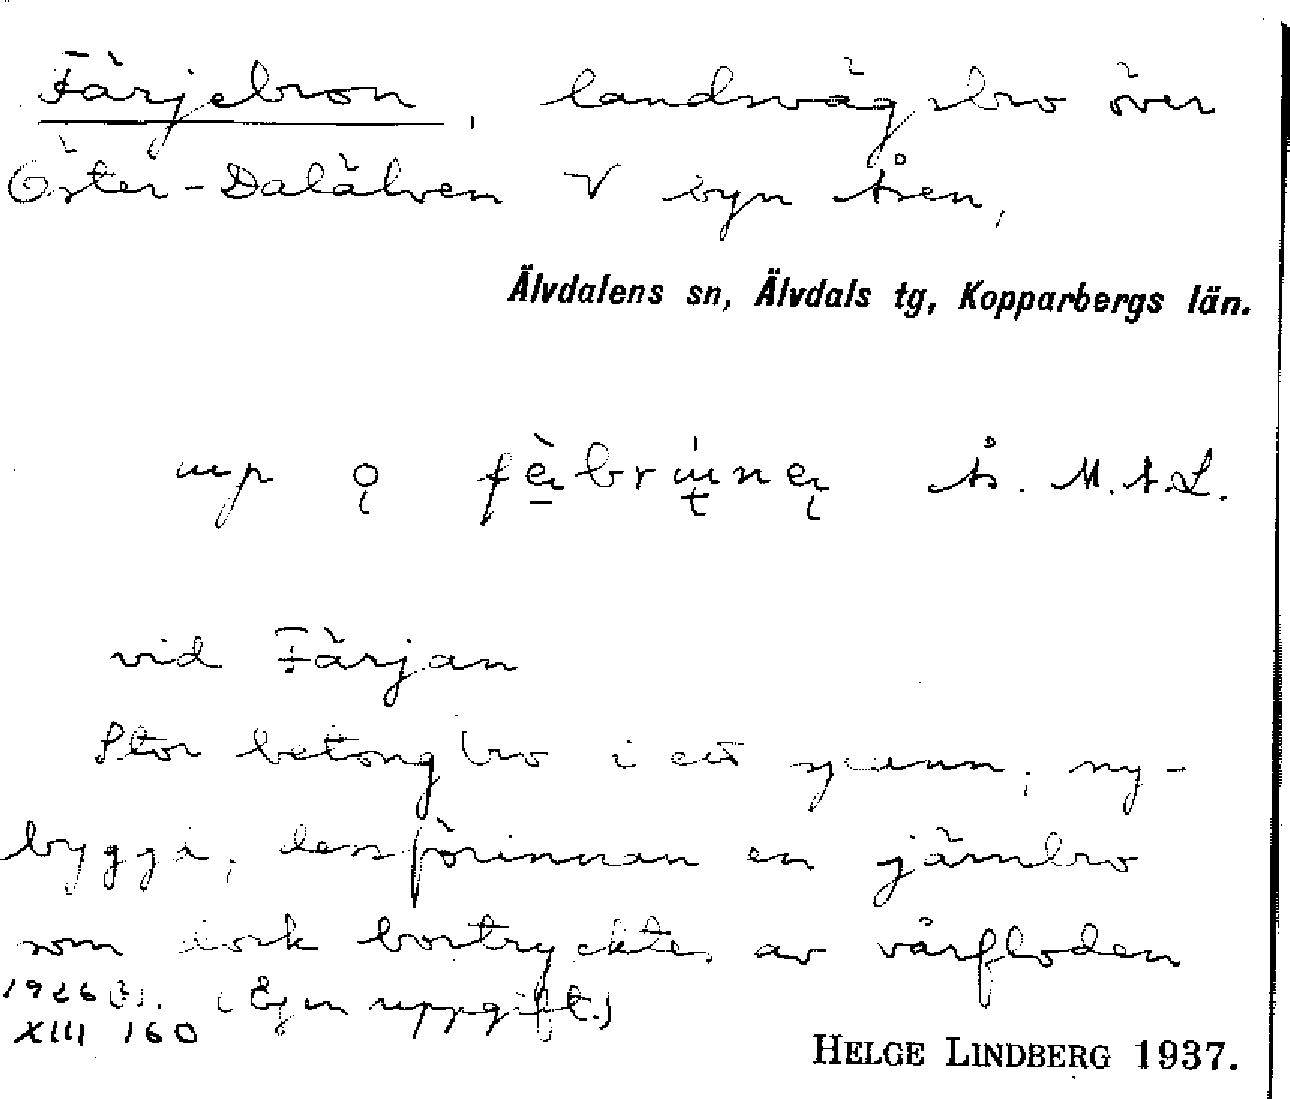 Färjebron, landsvägsbro över
Öster-Dalälven V byn Åsen,
Älvdalens sn, Älvdals tg, Kopparbergs län.
Ås. M.A.L.
vid Färjan
Stor betongbro i ett spann, ny-
byggd, dessförinnan en järnbro
som dock bortrycktes av vårfloden
1926 (?). (Egen uppgift.)
XIII 160
HELGE LINDBERG 1937.